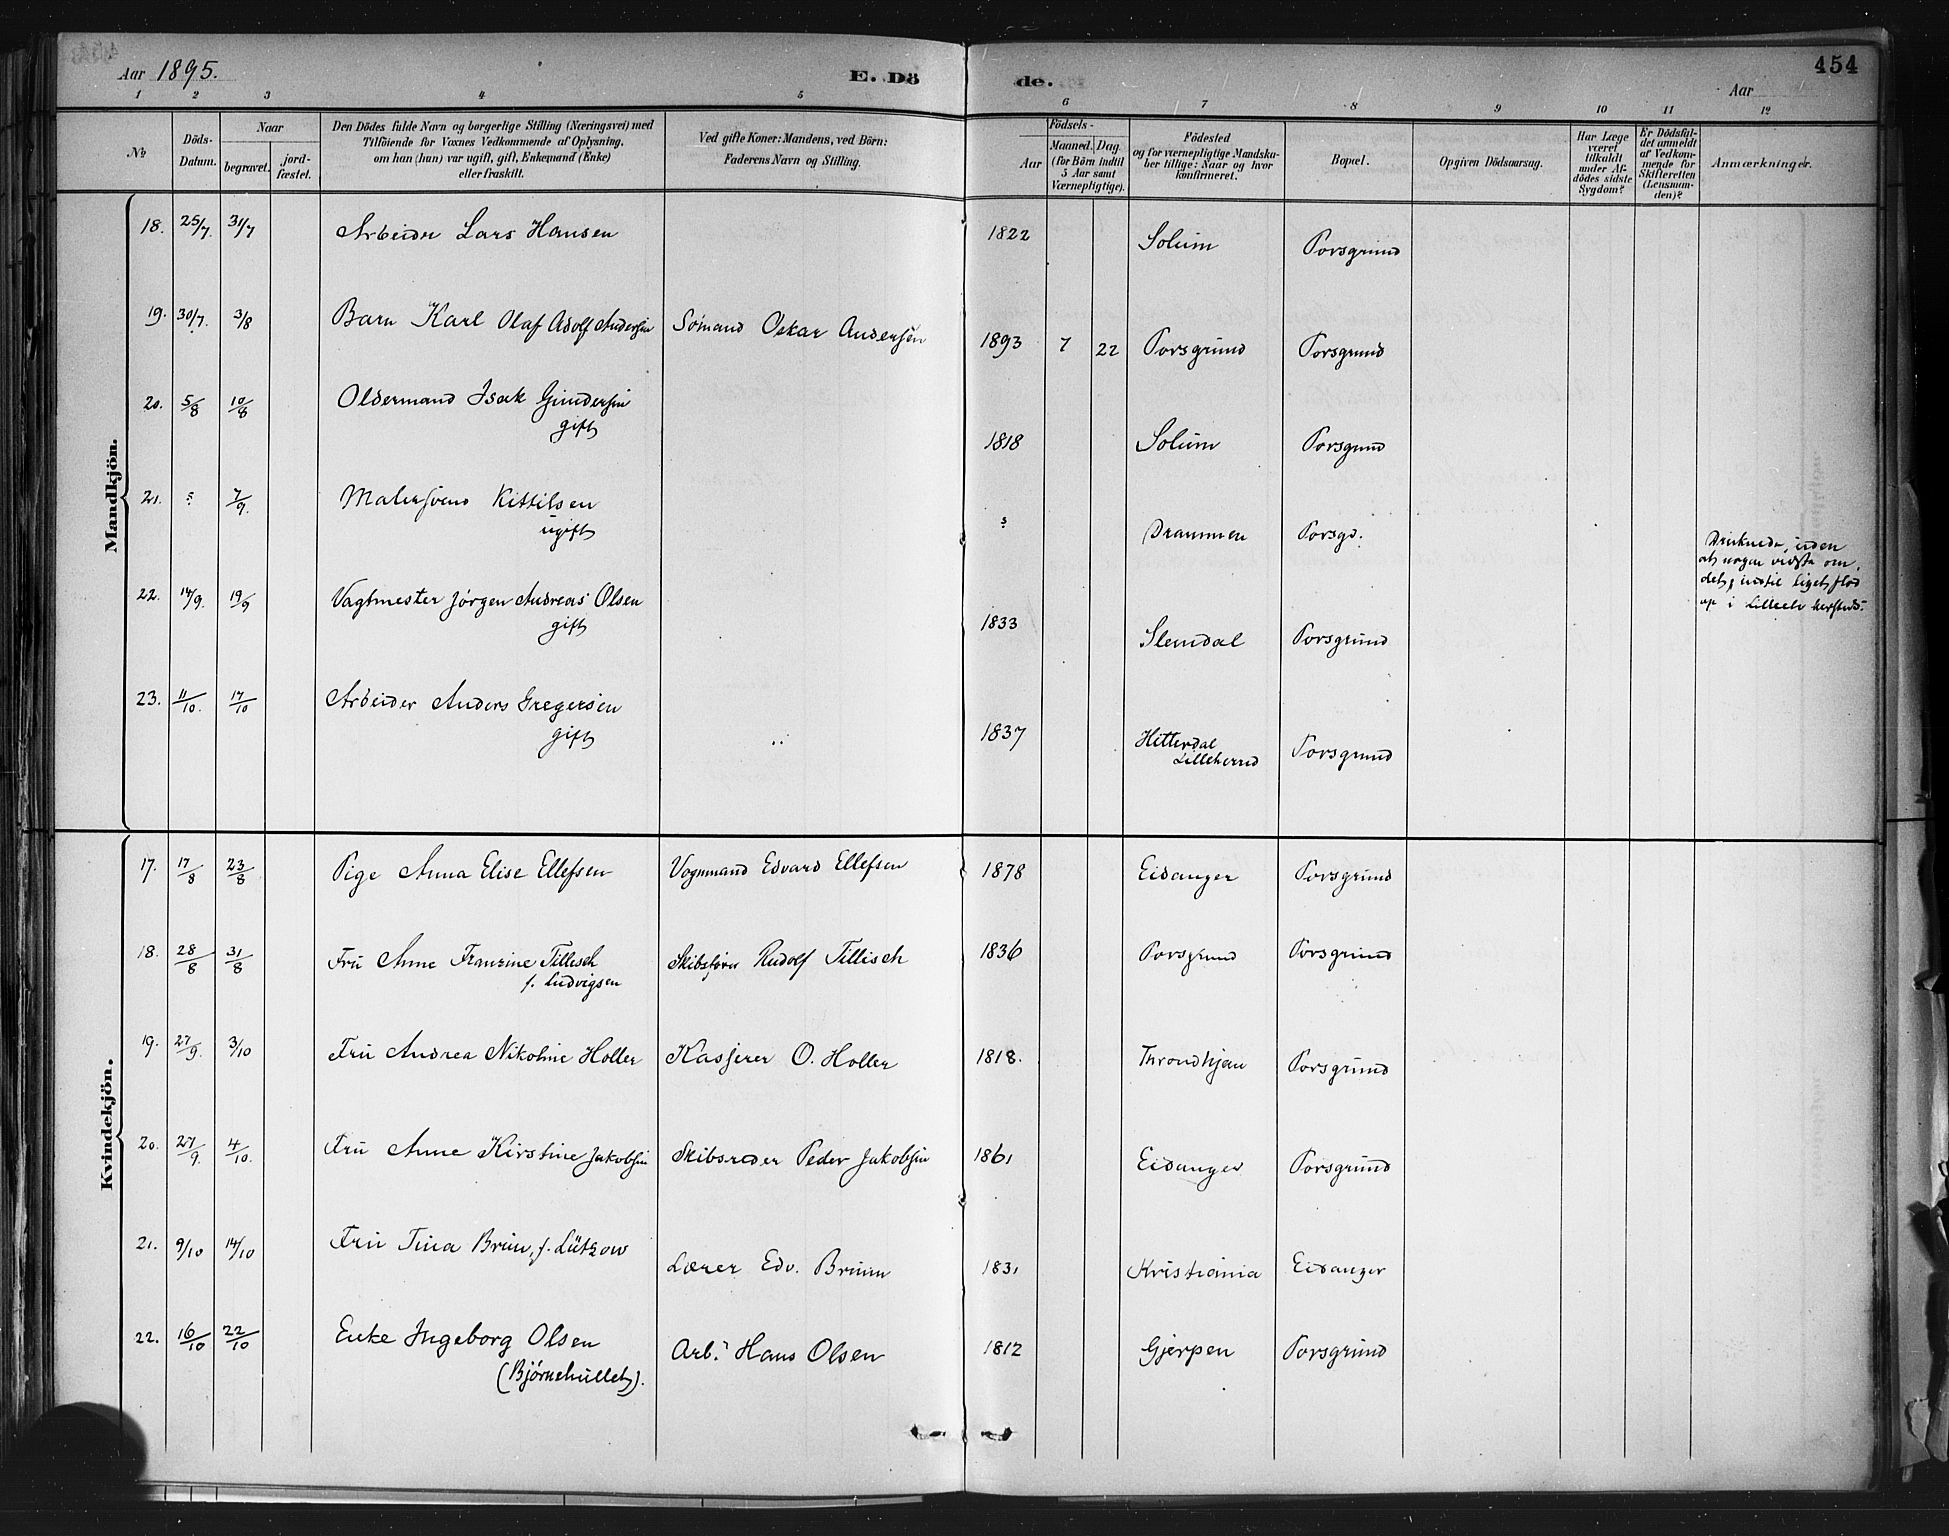 Aar 1895.
E. Dö
de.
454
Aar
1 2 3 4 5 6 7 8 9 10 11 12
No
Döds-Datum.
Naar
begravet.
jord-fæstet.
Den Dödes fulde Navn og borgerlige Stilling (Næringsvei) med
Tilföiende for Voxnes Vedkommende af Oplysning,
om han (hun) var ugift, gift, Enkemand (Enke)
eller fraskilt.
Ved gifte Koner: Mandens, ved Börn:
Faderens Navn og Stilling.
Födsels-
Aar
Maaned. Dag.
(for Börn indtil
5 Aar samt
Værnepligtige).
Födested
og for værnepligtige Mandska-
ber tillige: Naar og hvor
konfirmeret.
Bopæl.
Opgiven Dödsaarsag.
Har Læge
været
tilkaldt
under Af-
dödes sidste
Sygdom?
Er Dödsfal-
det anmeldt
af Vedkom-
mende for
Skifteretten
(Lensman-
den)?
Anmærkninger.
Mandkjön.
18. 25/7. 31/7 Arbeider Lars Hansen 1822 Solum Porsgrund
19. 30/7. 3/8 Barn Karl Olaf Adolf Andersen Sømand Oskar Andersen 1893 7 22 Porsgrund Porsgrund
20. 5/8 10/8 Oldermand Isak Gundersen
gift 1818 Solum Porsgrund
21. ? 7/9. Malersvend Kittilsen
ugift ? Drammen Porsgd.
Druknede, uden
at nogen vidste om
det, indtil Liget flød
op i Lilleelv hersteds.
22. 14/9. 19/9 Vagtmester Jørgen Andreas Olsen
gift 1833 Slemdal Porsgrund
23. 11/10. 17/10 Arbeider Anders Gregersen
gift 1837 Hitterdal
Lilleherred Porsgrund
Kvindekjön.
17. 17/8 23/8 Pige Anna Elise Ellefsen Vognmand Edvard Ellefsen 1878 Eidanger Porsgrund
18. 28/8 31/8 Fru Anne Franzine Tillisch
f. Ludvigsen Skibsfører Rudolf Tillisch 1836 Porsgrund Porsgrund
19. 27/9. 3/10 Fru Andrea Nikoline Holler Kasserer O. Holler 1818. Throndhjem Porsgrund
20. 27/9. 4/10. Fru Anne Kirstine Jakobsen Skibsreder Peder Jakobsen 1861 Eidanger Porsgrund
21. 9/10 14/10 Fru Tina Bruun, f. Lützow
Lærer Edv. Bruun 1831 Kristiania Eidanger
22. 16/10 22/10 Enke Ingeborg Olsen
(Bjørnehullet). Arb. Hans Olsen 1812 Gjerpen Porsgrund